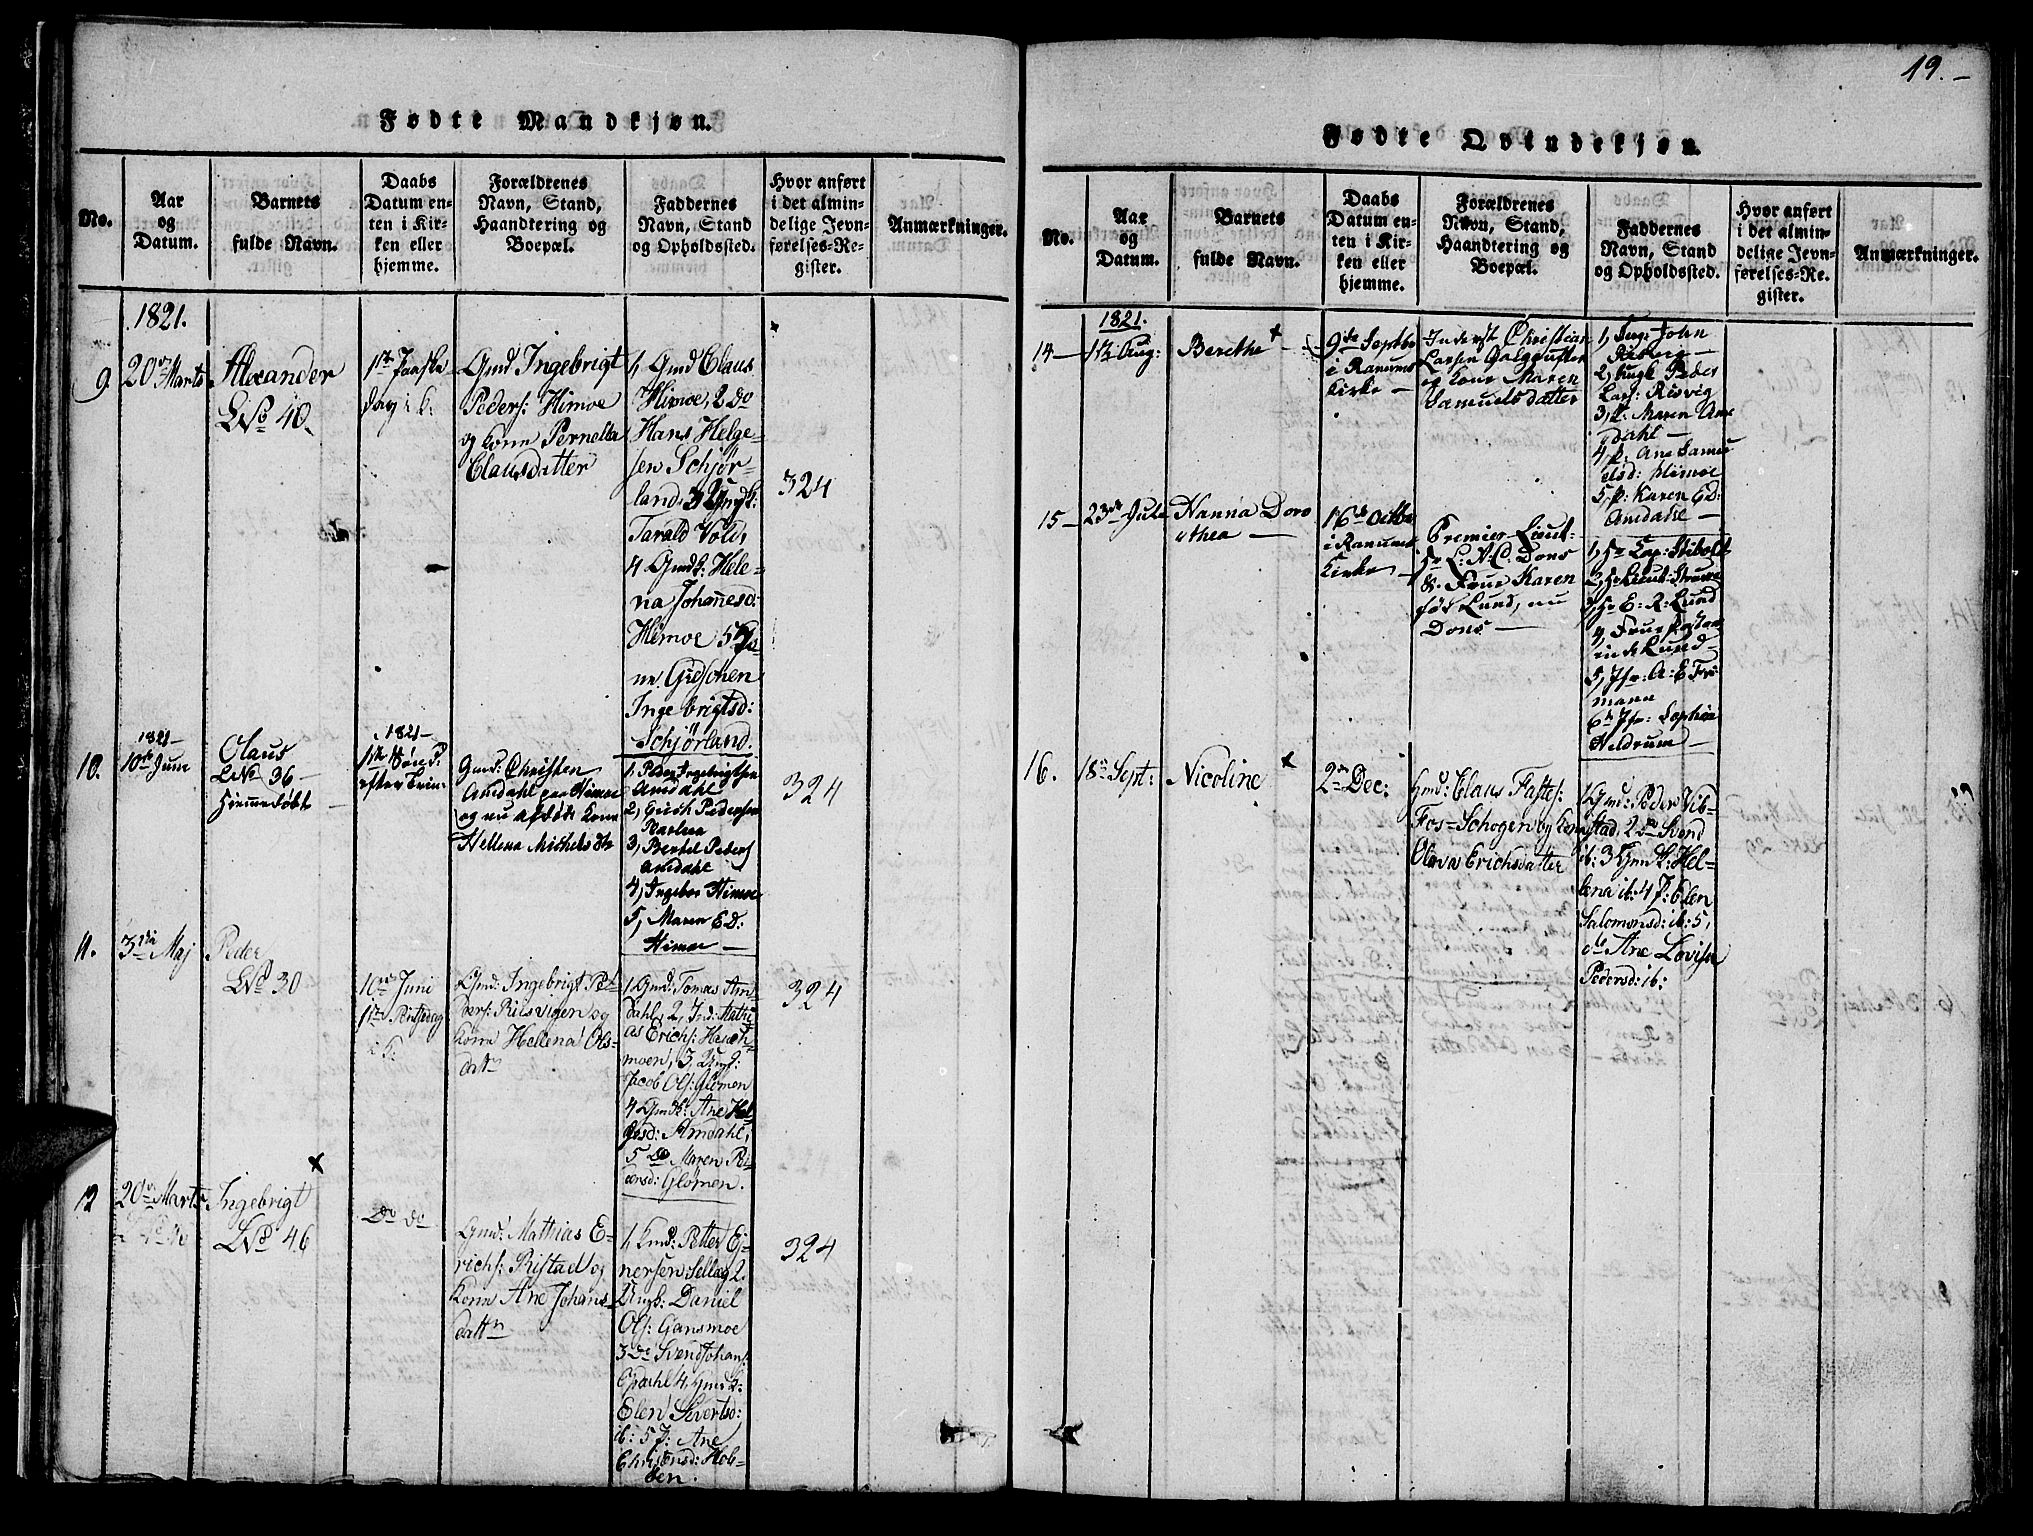 19.
Fødte Mandkjøn.
No.
Aar
og
Datum.
Barnets
fulde Navn.
Daabs
Datum en-
ten i Kir-
ken eller
hjemme.
Forældrenes
Navn, Stand,
Haandtering og
Boepæl.
Faddernes
Navn, Stand
og Opholdssted.
Hvor anført
i det almin-
delige Jevn-
førelses-Re-
gister.
Anmærkninger.
1821.
9.
20de Marts
Alexander
LNo 40.
1ste Paaske-
dag i K.
Gmd Ingebrigt
Peders: Himoe
og kone Pernella
Clausdatter
1, Gmd Claus
Himoe, 2 do
Hans Helge-
sen Schjør-
land, 3 Ungk:
Tarald Vold,
4 Gmdk: Hele-
na Johannesd:
Himoe 5
Ingebrigtsd:
Schjørland.
324
10.
1821
10de Juni
Olaus
LNo 36
Hjemmedøbt
1821
1ste Sønd.
efter Trin:
Gmd: Christen
Amdahl paa Himoe
og nu afdøde kone
Hellena Michelsdtr
1, Peder Ingebrigtsen
Amdahl
2, Erich Pedersen
3, Bertel Peders
Amdahl
4, Ingebor Himoe
5, Maren E. D:
Himoe
324
11.
3die Maj
Peder
LNo 30
10de Juni
1ste Pintsedag
i K:
Gmd: Ingebrigt Pe-
ders: Riisvigen og
kone Hellena Ols-
dattr
1, Gmd: Tomas Am-
dahl, 2, Ind: Mathi-
as Erichs:
moen, 3, Ungk:
Jacob Ols: Glømen
4 Gmdk: Ane Hel-
gesd: Amdahl,
5 do Maren Pe-
dersd: Glømen.
324
12
20de Marts
Ingebrigt
LNo 46
Do do
Gmd: Mathias E-
richs: Ristad og
kone Ane Johans-
dattr
1, Gmd: Petter Ej-
nersen Sellæg 2.
Ungk: Daniel
Ols: Gansmoe
3 do Svend Johans:
4, Gmdk:
Elen Sivertsd:
ib: 5 P: Ane
Christensd: Hol-
sen.
324
Fødte Qvindekjøn.
No.
Aar
og
Datum.
Barnets
fulde Navn.
Daabs
Datum en-
ten i Kir-
ken eller
hjemme.
Forældrenes
Navn, Stand,
Haandtering og
Boepæl.
Faddernes
Navn, Stand
og Opholdssted.
Hvor anført
i det almin-
delige Jevn-
førelses-Re-
gister.
Anmærkninger.
1821.
14
12 Aug:
Berethe
9de Septbr
i Ranums
Kirke
Inderst Christian
Larsen Galgguften
og kone Maren
Samuelsdatter
1, Ung: John
2, Ungk Peder
Lars: Risvig
3, p: Maren Am-
dahl
4, p: Ane Samu-
elsd: Himoe
5, p: Karen E D:
Amdahl
15
23de Julii
Hanna Doro-
thea
16de Octbr
i Ranums
Kirke
Premier-Lieut:
Hr L: A: C: Dons
& Frue Karen
fød Lund, nu
Dons
1, Hr Cap: Stibolt
2, Hr Lieut:
3, Hr E: R: Lund
4, Frue
Lund
5, Jfr: A: E
mann
6, Jfr: Sophia
Heldrum
16.
18de Sept:
Nicoline
2den Dec:
Gmd: Claus Fastes:
Fos-Schogen og kone
Olava Erichsdatter
1, Gmd: Peder Vib-
stad, 2 do Svend
ib: 3 Gmdk: Hel-
lena ib: 4 P: Elen
Salomonsd: ib: 5,
do Ane Lovise
Pedersd: ib: